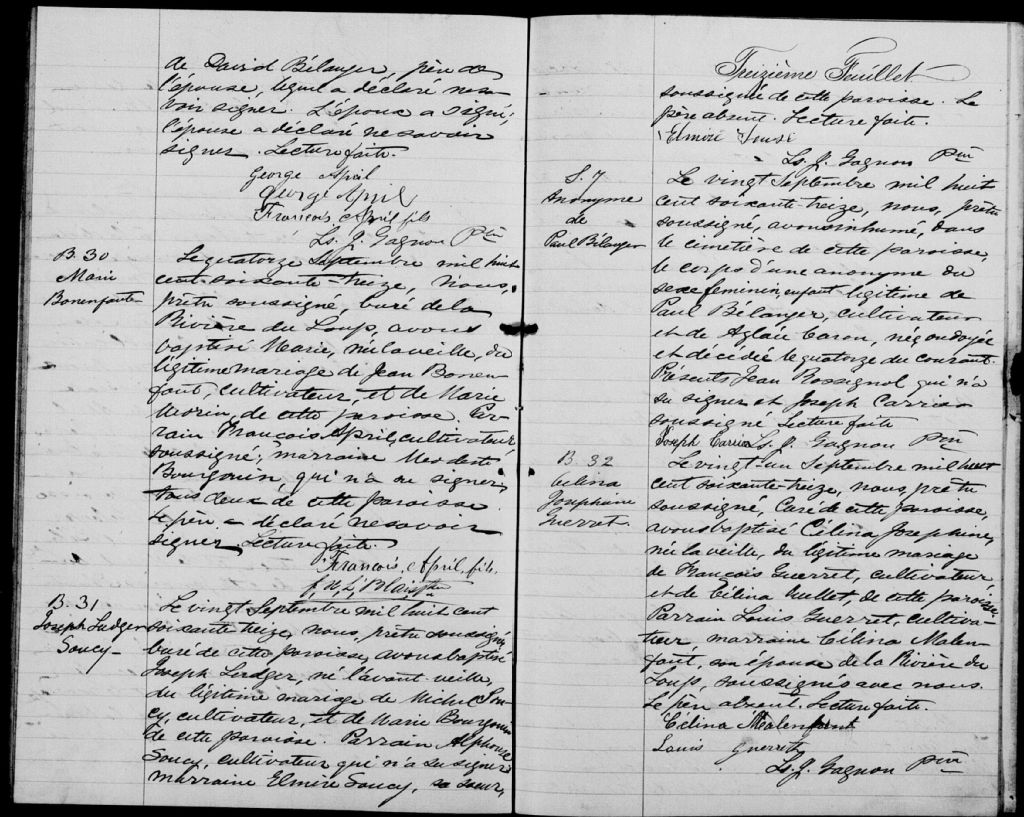 de David Bélanger, père de
l'épouse, lequel a déclaré ne sa-
voir signer. L'époux a signé;
l'épouse a déclaré ne savoir
signer. Lecture faite.
George April
George April
François April fils
Ls. J. Gagnon Ptre
B. 30
Marie
Bonenfant
Le quatorze Septembre mil huit
cent-soixante-treize, Nous,
prêtre soussigné, curé de la
Rivière du Loup, avons
baptisé Marie, née la veille, du
légitime mariage de Jean Bonen-
fant, cultivateur, et de Marie
Morin, de cette paroisse. Par-
rain François April, cultivateur
soussigné; marraine Modeste
Bourgouin, qui n'a su signer,
tous deux de cette paroisse.
Le père a déclaré ne savoir
signer. Lecture faite.
François April, fils.
Ptre
B. 31
Joseph Ludger
Soucy
Le vingt Septembre mil huit cent
soixante treize, nous, prêtre soussigné,
curé de cette paroisse, avons baptisé
Joseph Ludger, né l'avant veille,
du légitime mariage de Michel Sou-
cy, cultivateur, et de Marie Bourgouin
de cette paroisse. Parrain Alphonse
Soucy, cultivateur qui n'a su signer;
marraine Elmire Soucy, sa soeur,
Treizième Feuillet
soussignée de cette paroisse. Le
père absent. Lecture faite.
Elmire
Ls. J. Gagnon Ptre
S. 7
Anonyme
de
Paul Bélanger
Le vingt Septembre mil huit
cent soixante treize, nous, prêtre
soussigné, avons inhumé, dans
le cimetière de cette paroisse,
le corps d'une anonyme du
sexe féminin, enfant légitime de
Paul Bélanger, cultivateur
et de Aglaé Caron, née ondoyée
et décédée le quatorze du courant.
Présents Jean Rossignol qui n'a
su signer et Joseph Carrier
soussigné Lecture faite
Joseph Carrier Ls. J. Gagnon Ptre
B. 32
Célina
Josephine
Guerret
Le vingt-un Septembre mil huit
cent soixante-treize, nous, prêtre
soussigné, Curé de cette paroisse,
avons baptisé Célina Josephine,
née la veille, du légitime mariage
de François Guerret, cultivateur,
et de Célina Ouellet, de cette paroisse
Parrain Louis Guerret, cultiva-
teur, marraine Célina Malen-
fant, son épouse de la Rivière du
Loup, soussignés avec nous.
Le père absent. Lecture faite.
Célina Malenfant
Louis Guerret
Ls. J. Gagnon Ptre